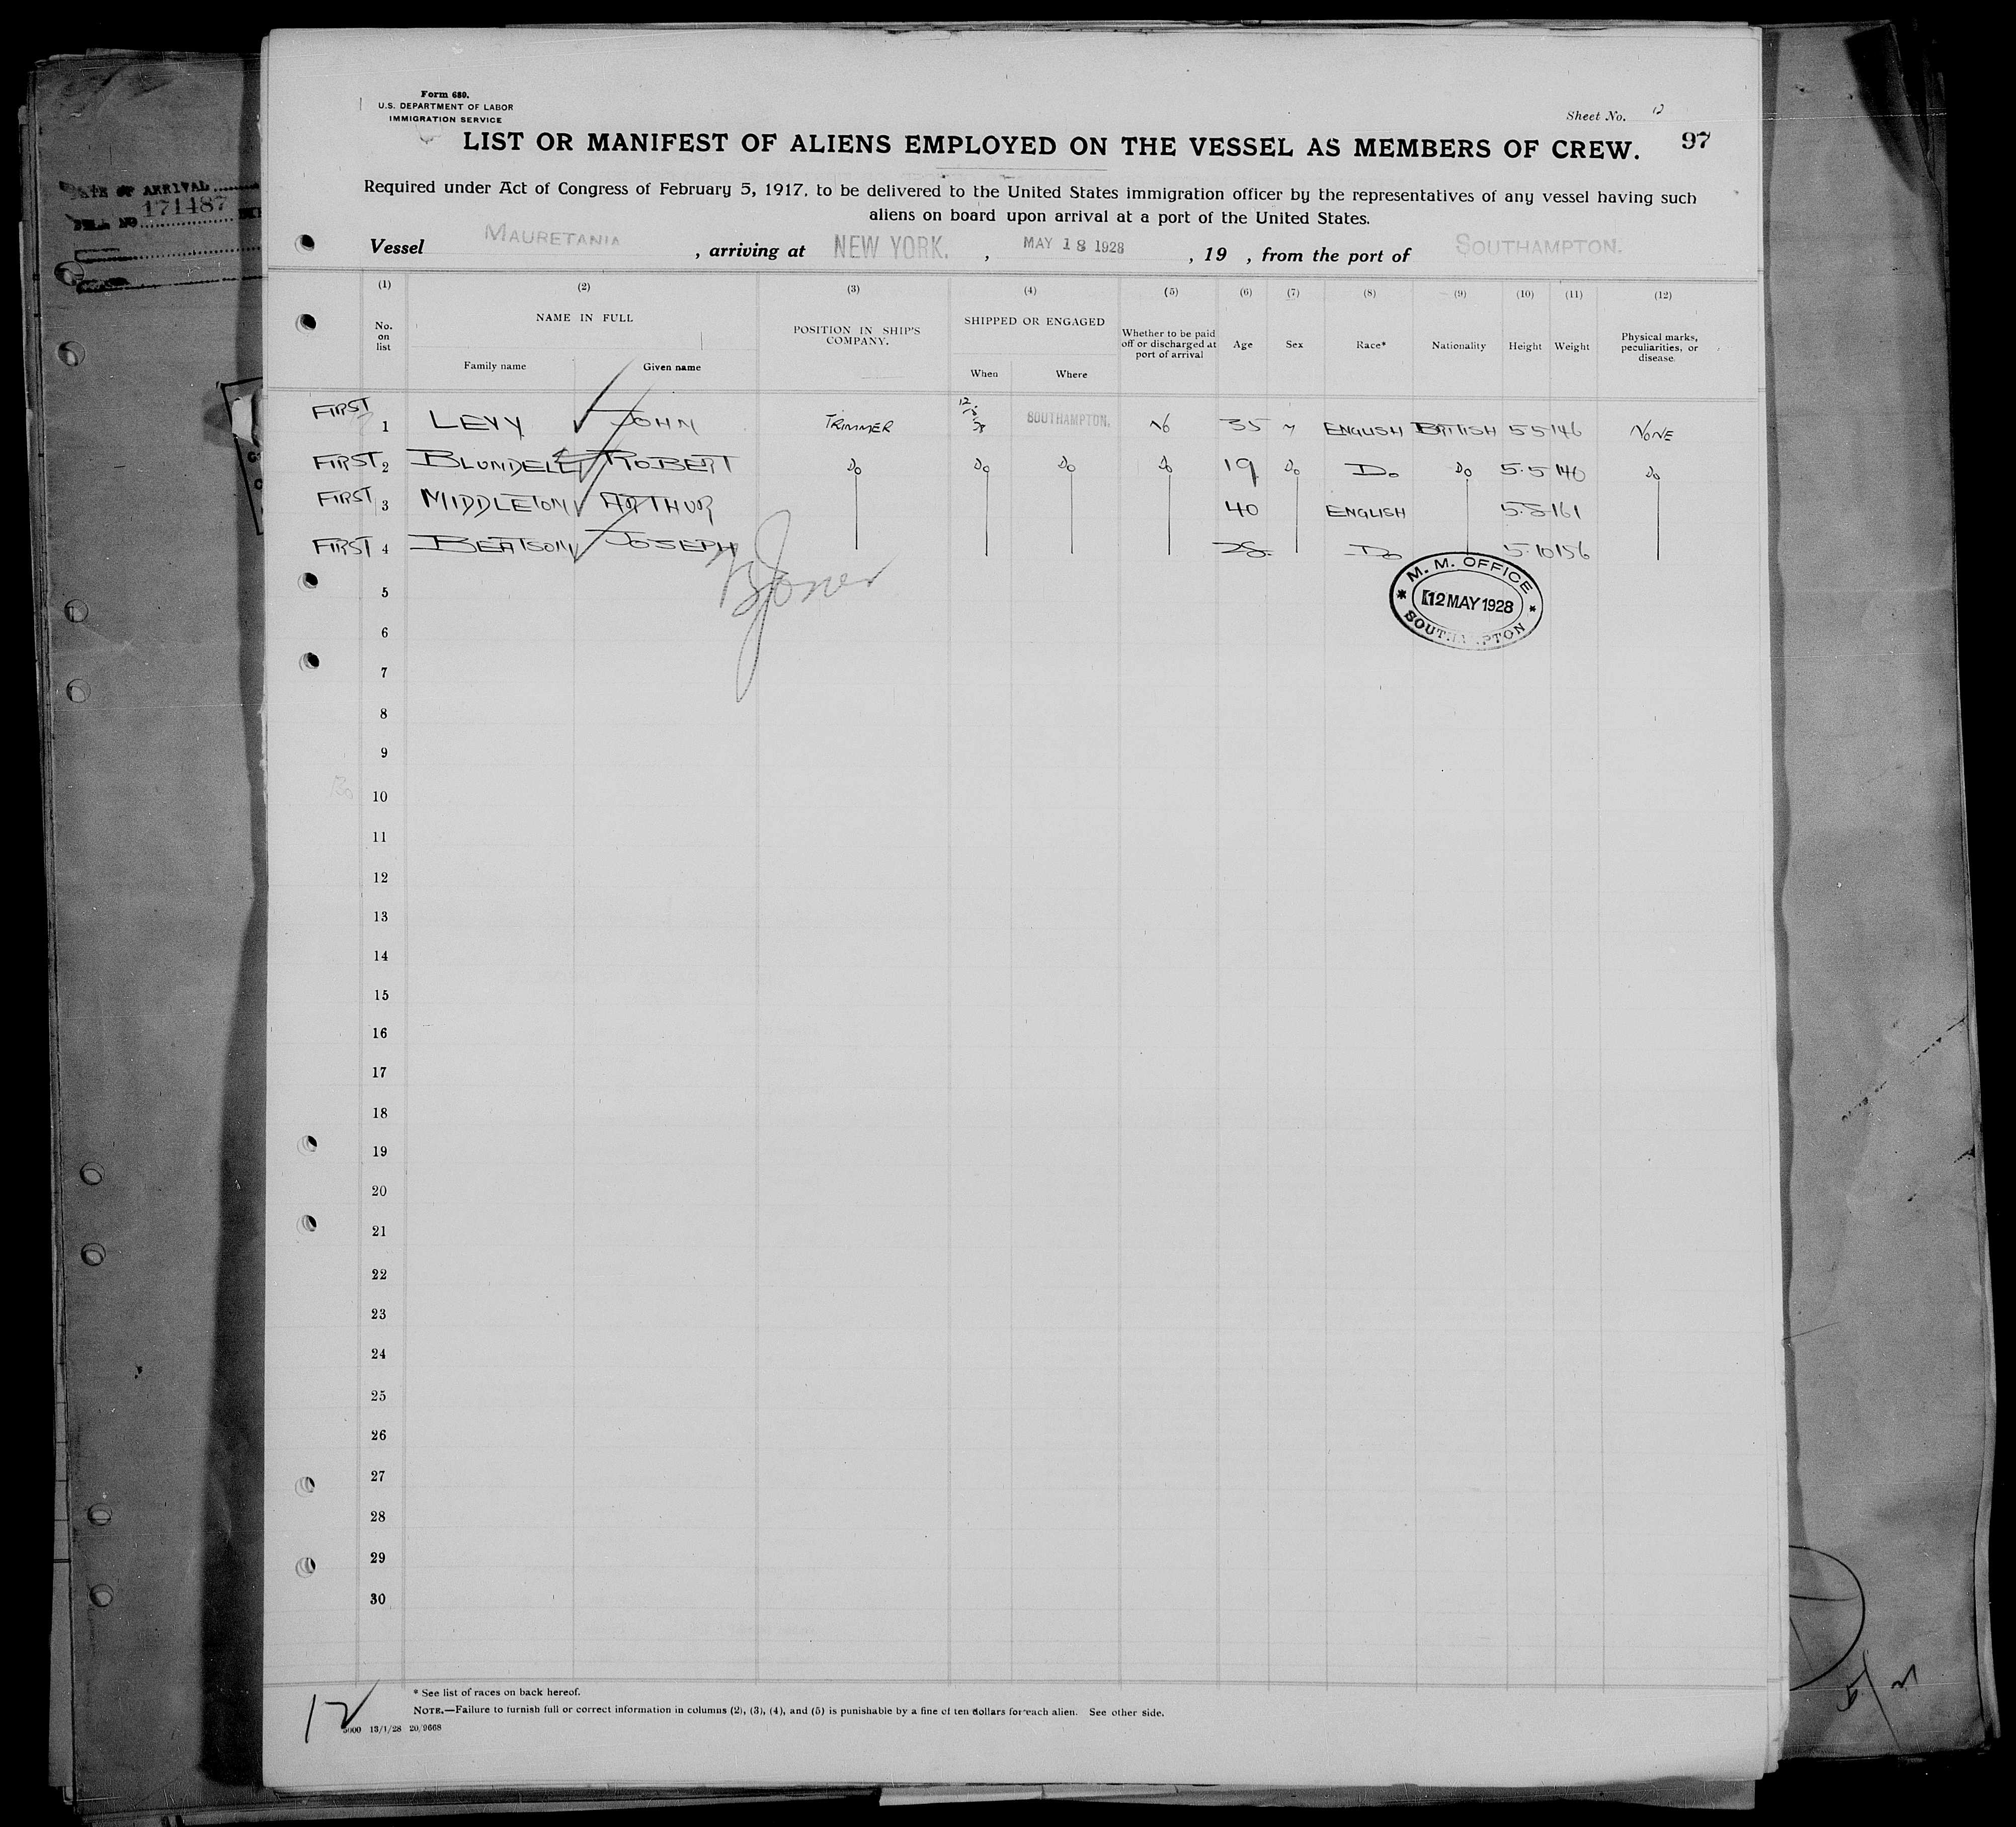 DATE OF ARRIVAL
171487
Form 680.
U.S. DEPARTMENT OF LABOR
IMMIGRATION SERVICE
Sheet No. 12
97
LIST OR MANIFEST OF ALIENS EMPLOYED ON THE VESSEL AS MEMBERS OF CREW.
Required under Act of Congress of February 5, 1917, to be delivered to the United States immigration officer by the representatives of any vessel having such
aliens on board upon arrival at a port of the United States.
Vessel MAURETANIA , arriving at NEW YORK. , MAY 18 1928 , 19 , from the port of SOUTHAMPTON.
(1) (2) (3) (4) (5) (6) (7) (8) (9) (10) (11) (12)
No. on list
NAME IN FULL
Family name Given name
POSITION IN SHIP'S COMPANY.
SHIPPED OR ENGAGED
When Where
Whether to be paid off or discharged at port of arrival
Age Sex Race* Nationality Height Weight
Physical marks, peculiarities, or disease.
FIRST 1 LEVY JOHN TRIMMER SOUTHAMPTON. No 35 M ENGLISH BRITISH 5 5 146 NONE
FIRST 2 BLUNDELL ROBERT Do Do Do Do 19 Do Do Do 5.5 140 Do
FIRST 3 MIDDLETON ARTHUR 40 ENGLISH 5.8 161
FIRST 4 BEATSON JOSEPH 28 Do 5.10 156
Jones
M. M. OFFICE
12 MAY 1928
SOUTHAMPTON
5
6
7
8
9
10
11
12
13
14
15
16
17
18
19
20
21
22
23
24
25
26
27
28
29
30
* See list of races on back hereof.
NOTE.—Failure to furnish full or correct information in columns (2), (3), (4), and (5) is punishable by a fine of ten dollars for each alien. See other side.
5000 13/1/28 20/9668
12